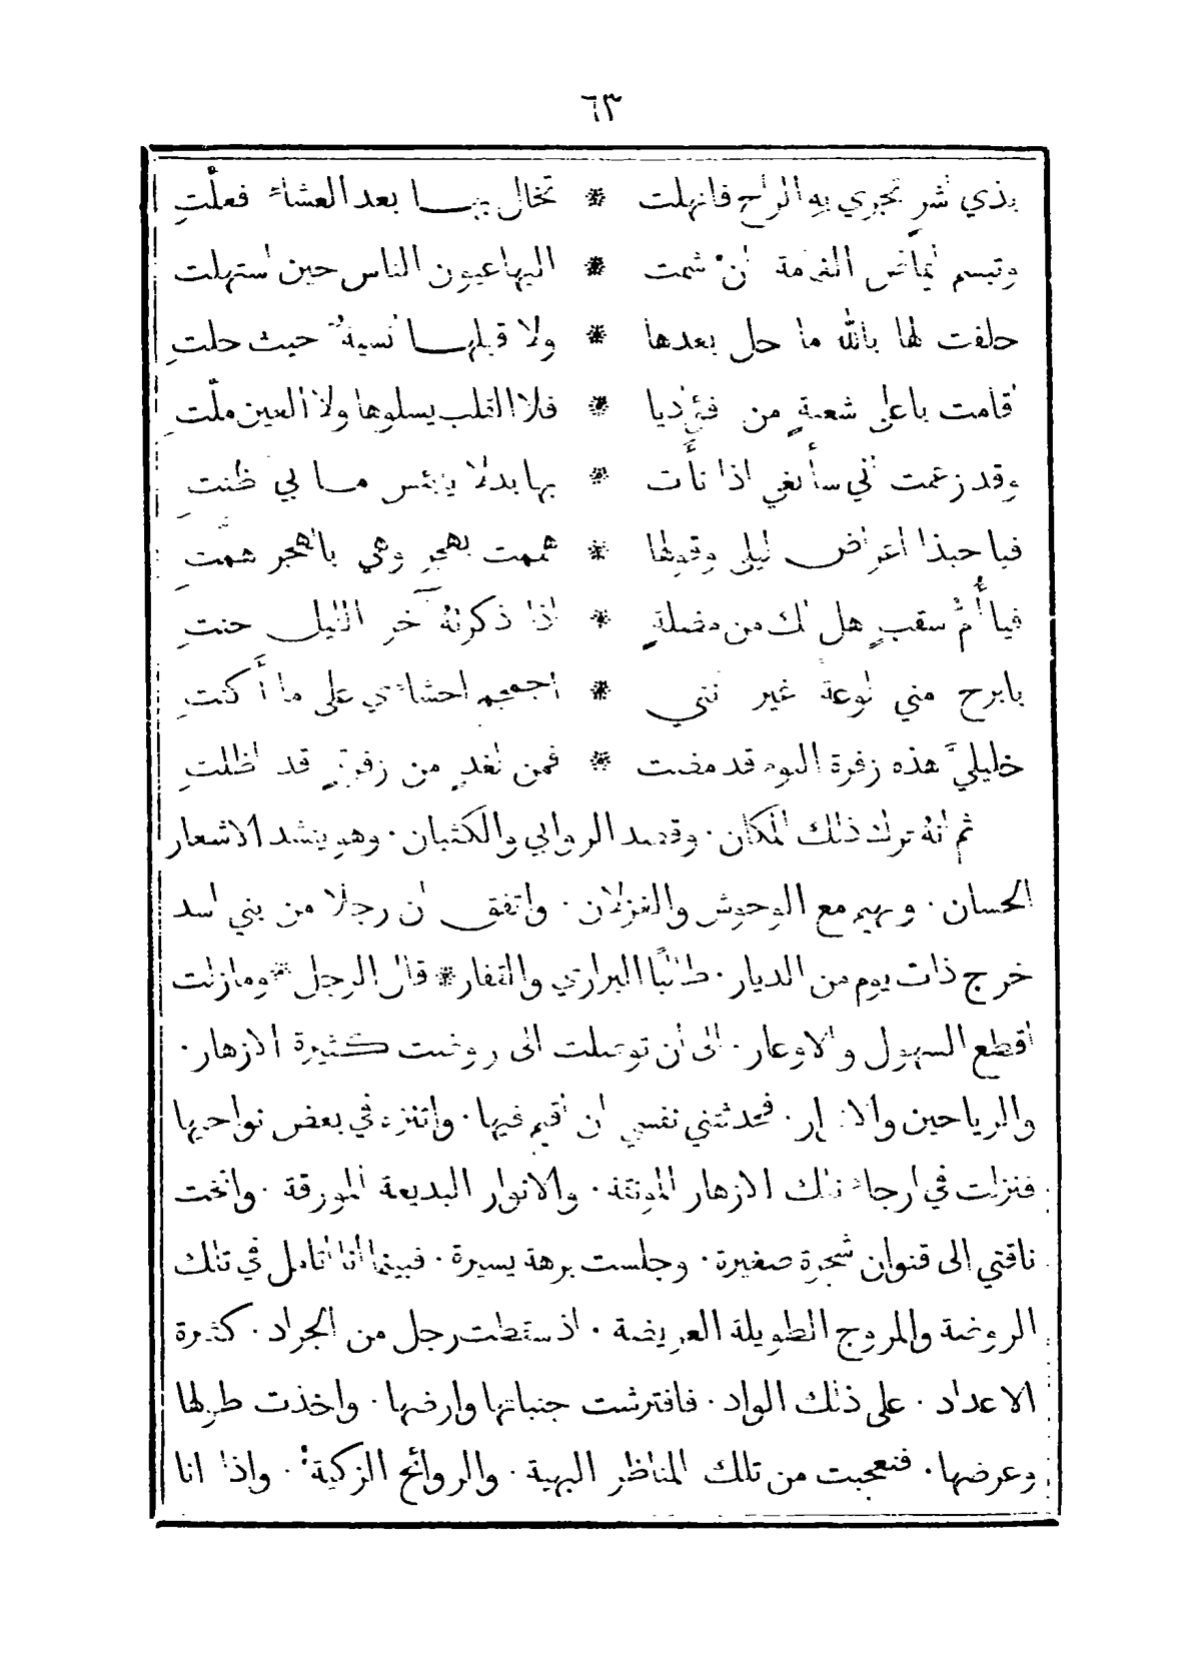 ٦٣
بذي اشر تجري به الراح فانهلت * تخال بها بعد العشاء فعلّتِ
وتبسم ايماض الغمامة ان شمت * اليها عيون الناس حين استهلت
حلفت لها بالله ما حل بعدها * ولا قبلها انسية حيث حلتِ
اقامت باعلى شعبةٍ من فؤاديا * فلا القلب يسلوها ولا العين ملّتِ
وقد زعمت اني سأبغي اذا نأَت * بها بدلا يا بئس ما بي ظنتِ
فيا حبذا اعراض ليلى وقولها * هممت بهجرٍ وهي بالهجر همّتِ
فيا أُمّ سقبٍ هل لك من مضلةٍ * اذا ذكرتهُ آخر الليل حنتِ
بابرح مني لوعة غير انني * اجمجم احشاءي على ما أَكنتِ
خليليَّ هذه زفرة اليوم قد مضت * فمن لغدٍ من زفرةٍ قد اظلتِ
ثم انهُ ترك ذلك المكان · وقصد الروابي والكثبان · وهو ينشد الاشعار
الحسان · ويهيم مع الوحوش والغزلان · واتفق ان رجلا من بني اسد
خرج ذات يوم من الديار · طالبًا البراري والقفار * قال الرجل * وما زلت
اقطع السهول والاوعار · الى ان توصلت الى روضت كثيرة الازهار ·
والرياحين · فحدثتني نفسي ان اقيم فيها · واتنزه في بعض نواحيها
فنزلت في ارجاء تلك الازهار المونقة · والانوار البديعة المورقة · وانخت
ناقتي الى قنوان شجرة صغيرة · وجلست برهة يسيرة · فبينما انا اتامل في تلك
الروضة والمروج الطويلة العريضة · اذ سقطت رجل من الجراد · كثيرة
الاعداد · على ذلك الواد · فافترشت جنباتها وارضها · واخذت طولها
وعرضها · فتعجبت من تلك المناظر البهية · والروائح الزكية · واذا انا